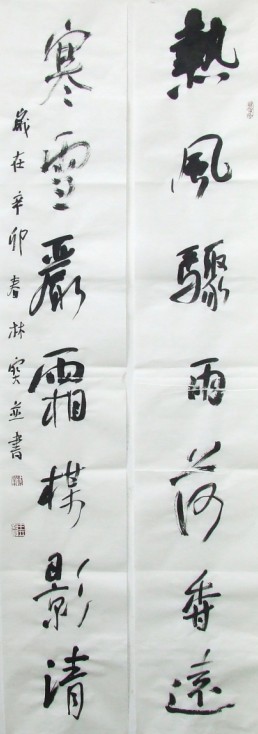 熱風驟雨荷香遠
寒雪嚴霜楳影清
歲在辛卯春林並書